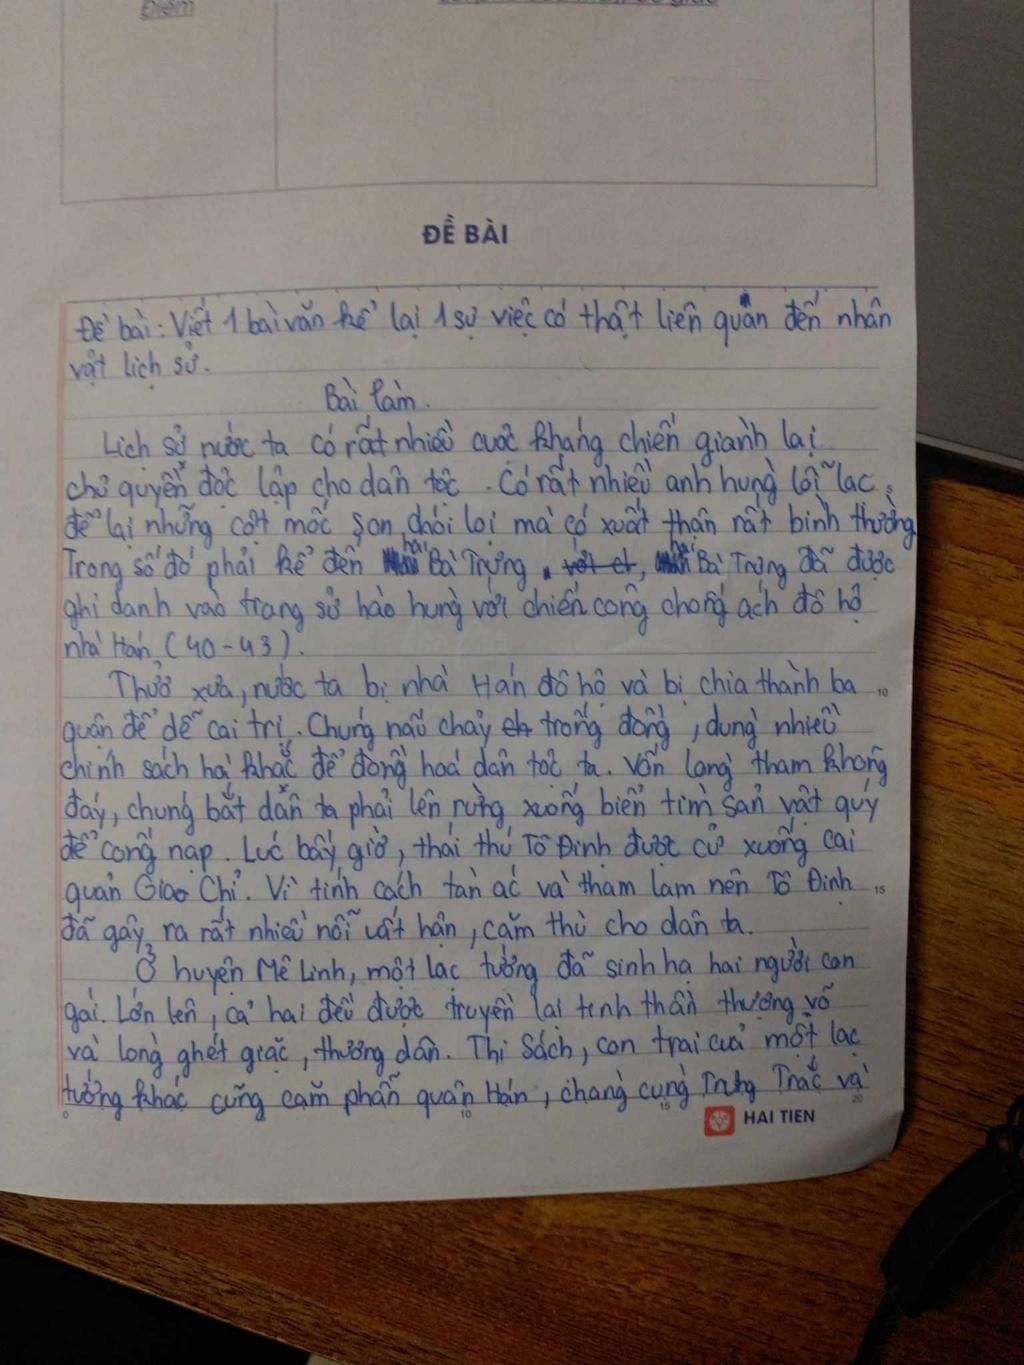 Điểm
ĐỀ BÀI
Đề bài: Viết 1 bài văn kể lại 1 sự việc có thật liên quan đến nhân
vật lịch sử.
Bài làm.
Lịch sử nước ta có rất nhiều cuộc kháng chiến giành lại
chủ quyền độc lập cho dân tộc. Có rất nhiều anh hùng lỗi lạc
để lại những cột mốc son chói lọi mà có xuất thân rất bình thường
Trong số đó phải kể đến hai Bà Trưng, hai Bà Trưng đã được
ghi danh vào trang sử hào hùng với chiến công chống ách đô hộ
nhà Hán (40-43).
Thuở xưa, nước ta bị nhà Hán đô hộ và bị chia thành ba 10
quận để dễ cai trị. Chúng nấu chảy trống đồng, dùng nhiều
chính sách hà khắc để đồng hoá dân tộc ta. Vốn lòng tham không
đáy, chúng bắt dân ta phải lên rừng xuống biển tìm sản vật quý
để cống nạp. Lúc bấy giờ, thái thú Tô Định được cử xuống cai
quản Giao Chỉ. Vì tính cách tàn ác và tham lam nên Tô Định 15
đã gây ra rất nhiều nỗi uất hận, căm thù cho dân ta.
Ở huyện Mê Linh, một lạc tướng đã sinh hạ hai người con
gái. Lớn lên, cả hai đều được truyền lại tinh thần thượng võ
và lòng ghét giặc, thương dân. Thi Sách, con trai của một lạc
tướng khác cũng căm phẫn quân Hán, chàng cùng Trưng Trắc và
0 10 15 20
HAI TIEN